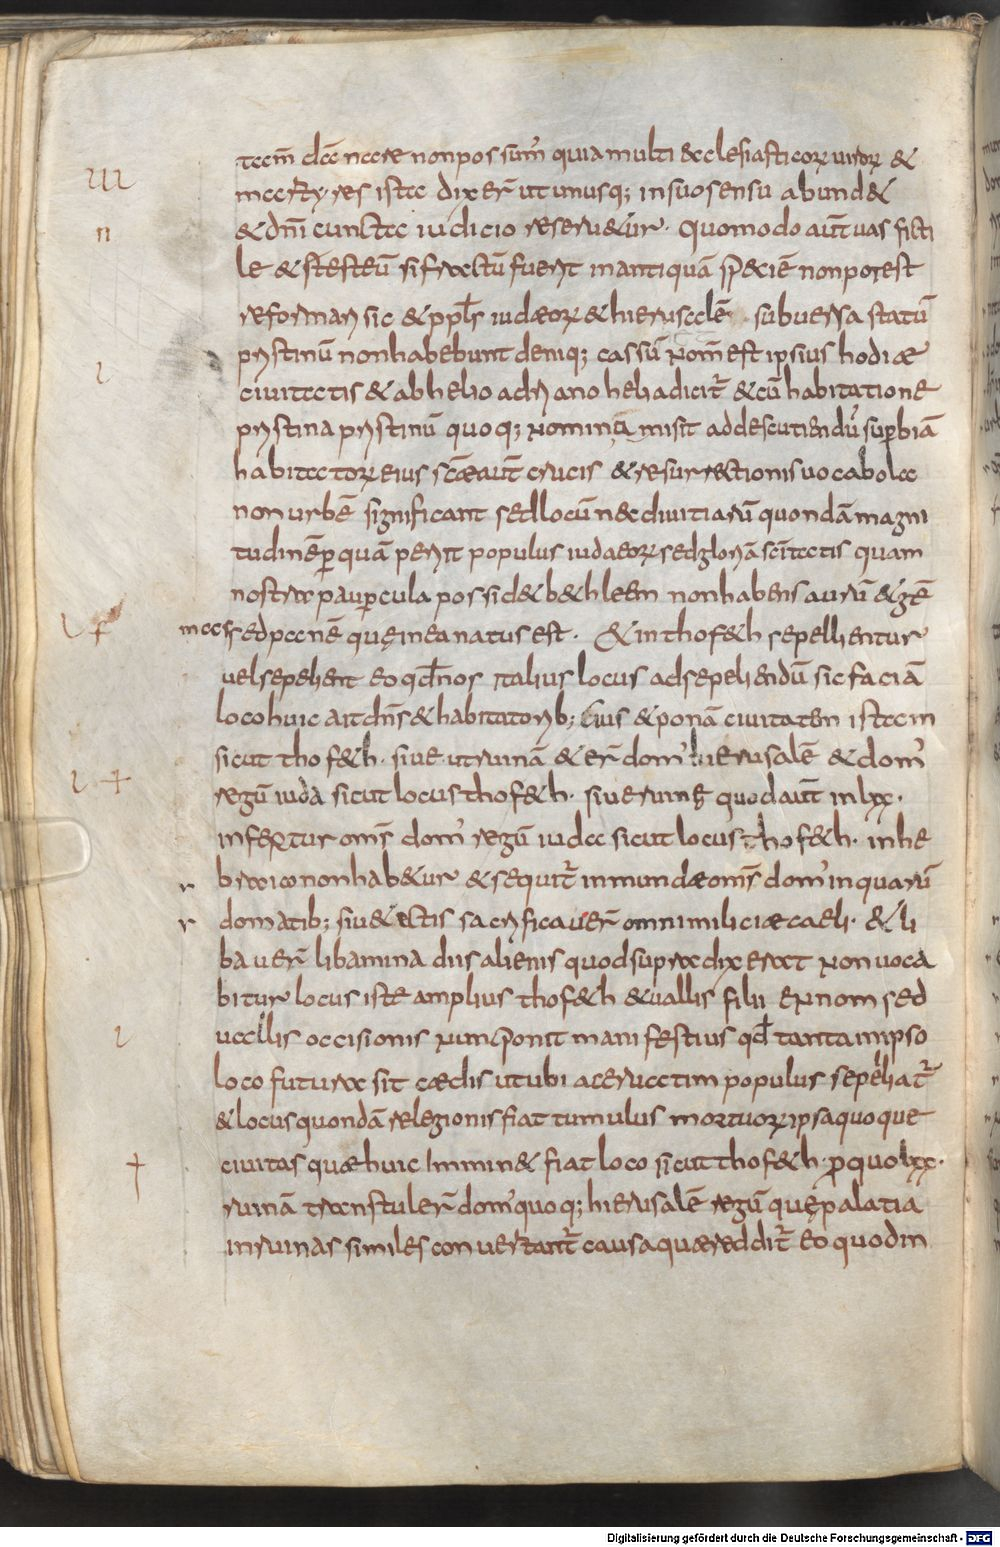 tam̄ dānare non possum̄ quia multi ecclesiasticoꝝ uiroꝝ &
martyres ista dixer̄ ut unusq; in suo sensu abund&
& dn̄i cuncta iudicio reseru&ur. Quomodo aūt uas ficti
le & testeū si fractū fuerit in antiquā speciē non potest
reformari sic & ppl̄s iudæoꝝ & hierusalē subuersa statū
pristinū non habebunt deniq; cassū nom̄ est ipsius hodiæ
ciuitatis & ab helio adriano helia dicit̄ & cū habitatione
pristina pristinū quoq; nomin amisit ad descutiendū superbiā
habitatoꝝ eius sc̄æ aūt crucis & resurrectionis uocabola
non urbē significant sed locū nec diuitiarū quondā magni
tudinē ꝑ quā periit populus iudaeoꝝ sed gloriā sc̄itatis quam
nostra paupercula possid& b&hleem non habens aurū & gē
mas sed panē quę in ea natus est. & in thof&h sepellientur
uel sepelient eo qd̄ nos it alius locus ad sepeliendū sic faciā
loco huic ait dn̄s & habitatorib; eius & ponā ciuitatem istam
sicut thof&h. siue ut ruinā & er̄ dom' hierusalē & dom'
regū iuda sicut locus thof&h. siue ruinę quod aūt in lxx.
infertur omīs dom' regū iuda sicut locus thof&h. in he
braico non hab&ur & sequit̄ inmundæ omīs dom' in quarū
domatib; siu& ectis sacrificauer̄ omni miliciæ caeli. & li
bauer̄ libamina diis alienis quod supra dixerat non uoca
bitur locus iste amplius thof&h & uallis filii ennom sed
uallis occisionis nunc ponit manifestius qd̄ tanta in ipso
loco futura sit cædis ut ubi aceruatim populus sepeliat̄
& locus quondā relegionis fiat tumulus mortuoꝝ ipsa quoque
ciuitas quæ huic Immin& fiat loco sicut thof&h. ꝓ quo lxx.
ruinā transtuler̄ dom' quoq; hierusalē regū quę palatia
in ruinas similes conuertant̄ causa quæ reddit̄ eo quod in
Digitalisierung gefördert durch die Deutsche Forschungsgemeinschaft - DFG